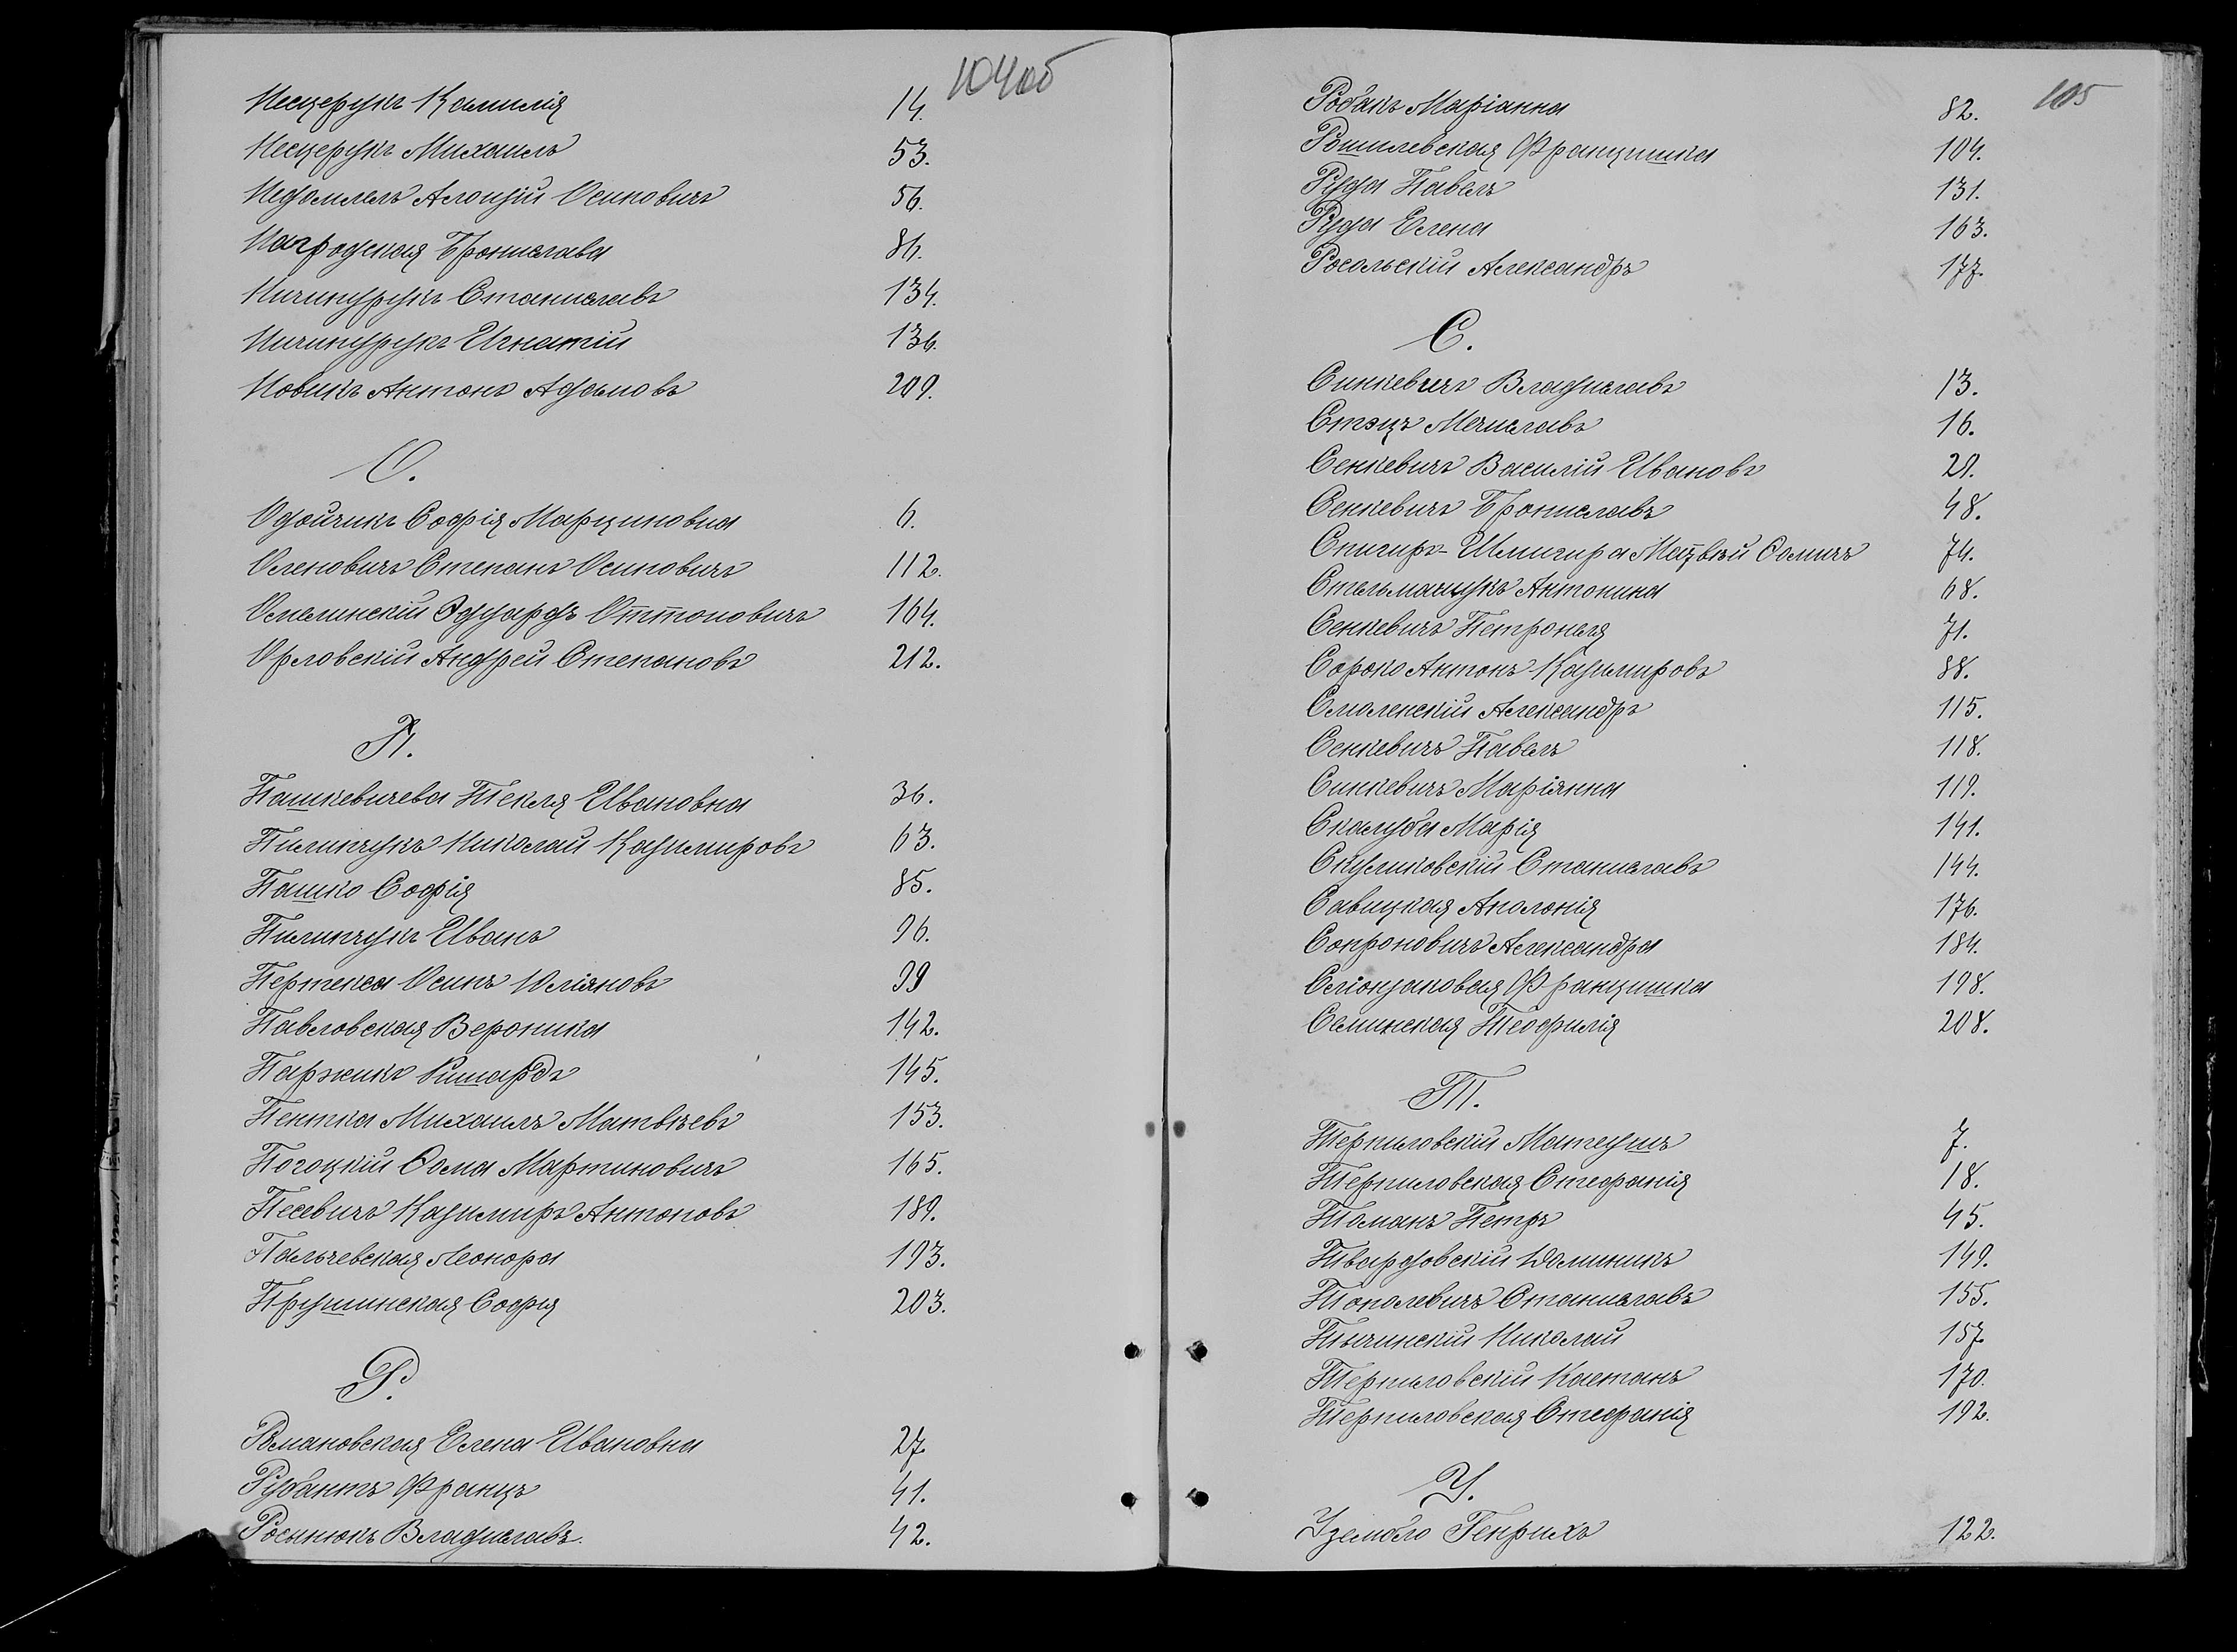 104об
Несцерукъ Камилія 14.
Несцерукъ Михаилъ 53.
Недомлелъ Алоизій Осиповичъ 56.
Нагродская Брониславa 86.
Ничипурукъ Станиславъ 134.
Ничипурукъ Игнатій 136.
Новикъ Антонъ Адамовъ 209.
О.
Одойчикъ Софія Марциновна 6.
Оленовичъ Степанъ Осиповичъ 112.
Осмалинскій Эдуардъ Оттоновичъ 164.
Орловскій Андрей Степановъ 212.
П.
Пашкевичева Текля Ивановна 36.
Пилипчукъ Николай Казимировъ 63.
Пашко Софія 85.
Пилипчукъ Иванъ 96.
Пертекса Осипъ Юліяновъ 99
Павловская Вероника 142.
Паржикъ Ришардъ 145.
Пентка Михаилъ Матвѣевъ 153.
Погоцкій Ѳома Мартиновичъ 165.
Песевичъ Казимиръ Антоновъ 189.
Пальчевская Леонора 193.
Прушинская Софія 203.
Р.
Романовская Елена Ивановна 27.
Рубантъ Францъ 41.
Росынюкъ Владиславъ. 42.
105
Робакъ Маріанна 82.
Рошилевская Францишка 104.
Руда Павелъ 131.
Руда Елена 163.
Росольскій Александръ 177.
С.
Синкевичъ Владиславъ 13.
Стэцъ Мечиславъ 16.
Сенкевичъ Василій Ивановъ 29.
Сенкевичъ Брониславъ 48.
Снигирь-Шмигира Матвѣй Ѳомичъ 74.
Стельмащукъ Антонина 68.
Сенкевичъ Петронеля 71.
Сороко Антонъ Казимировъ 88.
Смоленскій Александръ 115.
Сенкевичъ Павелъ 118.
Синкевичъ Маріянна 119.
Скалуба Марія 141.
Скуликовскій Станиславъ 144.
Савицкая Аполонія 176.
Сопроновичъ Александра 184.
Францишка 198.
Саминская Теофилія 208.
Т.
Терпиловскій Матеушъ 7.
Терпиловская Стефанія 18.
Томанъ Петръ 45.
Твардовскій Доминикъ 149.
Тополевичъ Станиславъ 155.
Тычинскій Николай 157.
Терпиловскій Каетанъ 170.
Терпиловская Стефанія 192.
У.
Узембло Генрихъ 122.